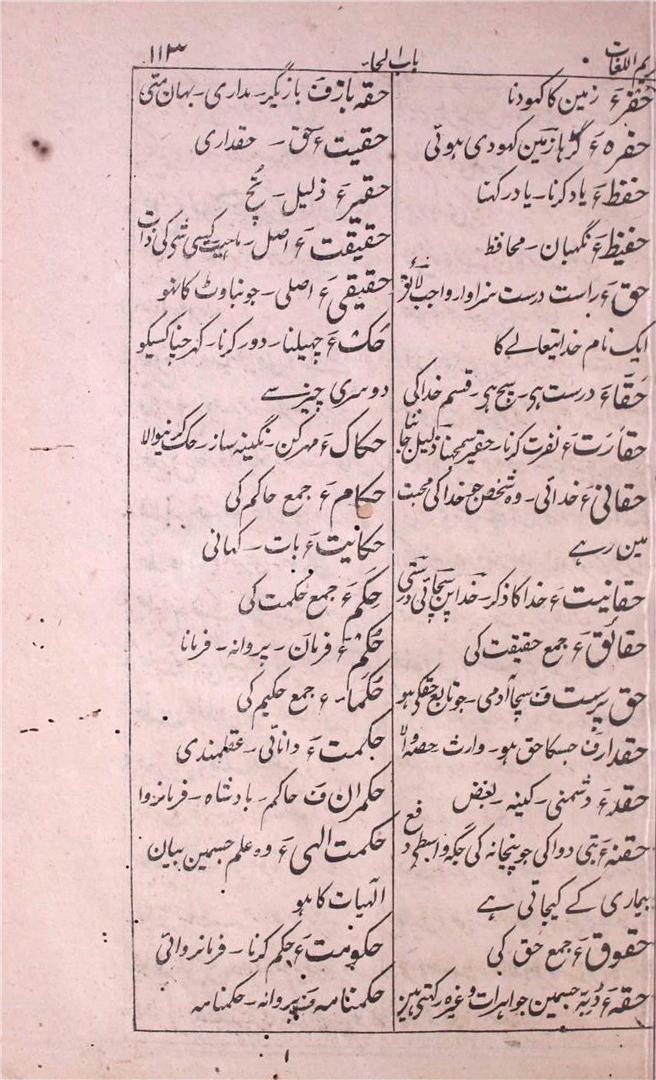 باب الحاء
۱۱۳
حفر ء زمین کا کھودنا
حفرہ ء گڑھا زمین کھودی ہوئی
حفظ ء یاد کرنا - یاد رکھنا
حفیظ ء نگہبان - محافظ
حق ء راست درست سزاوار واجب لائق
ایک نام خدایتعالے کا
حَقّا ء درست ہی - سچ ہی - قسم خدا کی
حقارت ء نفرت کرنا - حقیر سمجہنا ذلیل جاننا
حقانی ء خدائی - وہ شخص جو خدا کی محبت
مین رہے
حقانیت ء خدا کا ذکر - خدا پن سچائی
حقائق ء جمع حقیقت کی
حق پرست ف سچا آدمی - جو تابع حق کی ہو
حقدار ف جسکا حق ہو - وارث حصہ والا
حقد ء دشمنی - کینہ - بغض
حقنہ ء بتی دوا کی جو پیخانہ کی جگہ واسطے دفع
بیماری کے کیجاتی ہے
حقوق ء جمع حق کی
حقہ ء ڈبہ جسمین جواہرات وغیرہ رکھتی ہین
حقہ باز ف بازیگر - مداری - بہان متی
حقیت ء حق - حقداری
حقیر ء ذلیل - نُچ
حقیقت ء اصل - ماہیت کسی شی کی ذات
حقیقی ء اصلی - جو بناوٹ کا نہو
حَک ء چہیلنا - دور کرنا - کہرچنا کسیکو
دوسری چیز سے
حکاک ء مہرکن - نگینہ ساز - حک کرنیوالا
حکام ء جمع حاکم کی
حکایت ء بات - کہانی
حِکَم ء جمع حکمت کی
حُکْم ء فرمان - پروانہ - فرمانا
حُکَما ء جمع حکیم کی
حکمت ء دانائی - عقلمندی
حکمران ف حاکم - بادشاہ - فرمانروا
حکمت الہی ء وہ علم جسمین بیان
الٰہیات کا ہو
حکومت ء حکم کرنا - فرمانروائی
حکمنامہ ف پروانہ - حکمنامہ